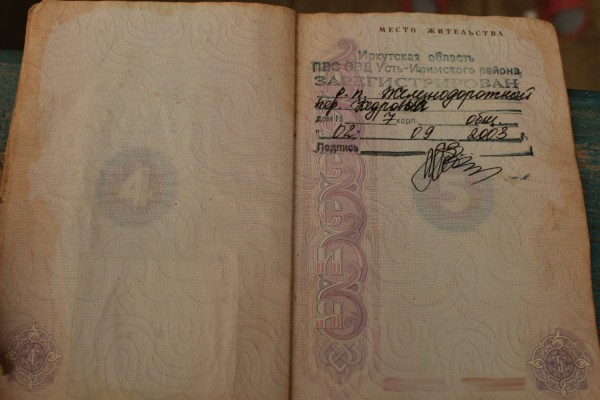 4
МЕСТО ЖИТЕЛЬСТВА
Иркутская область
ПВС ОВД Усть-Илимского района
ЗАРЕГИСТРИРОВАН
р.п. Железнодорожный
пер. Кедровый
дом N 7 корп. общ.
"02" 09 2003 г.
Подпись
5